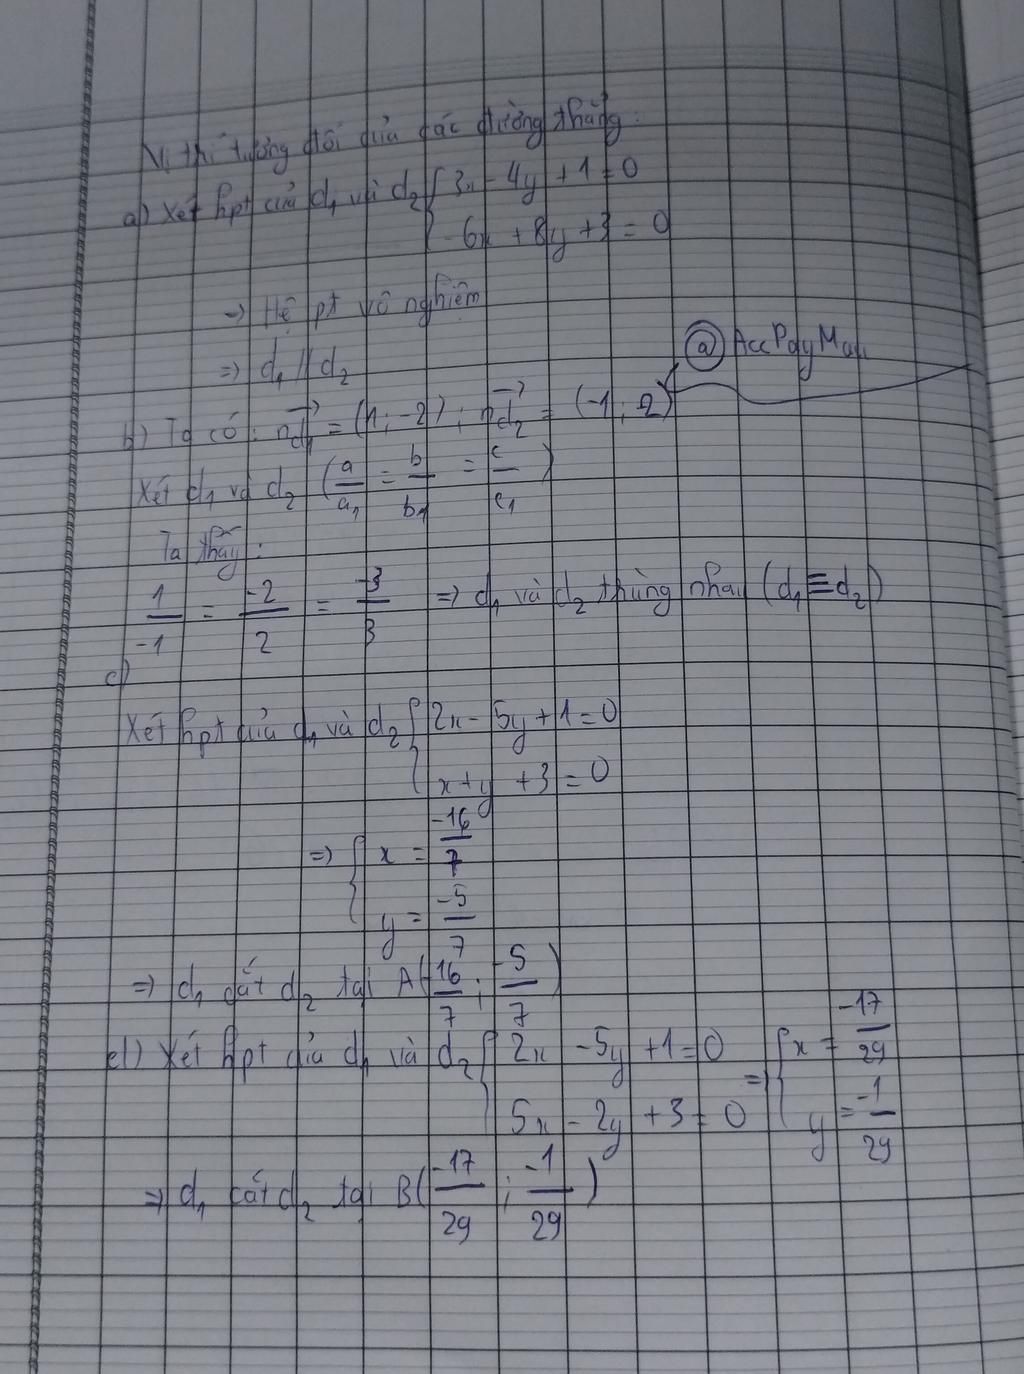 Vị trí tương đối của các đường thẳng:
a) Xét hpt của d₁ và d₂ { 3x - 4y + 1 = 0
-6x + 8y + 3 = 0
→ Hệ pt vô nghiệm
⇒ d₁ // d₂
@AccPayMau
b) Ta có: n⃗d₁ = (1; -2); n⃗d₂ = (-1; 2)
Xét d₁ và d₂ (a/a₁ = b/b₁ = c/c₁)
Ta thấy:
1/-1 = -2/2 = -3/3 ⇒ d₁ và d₂ trùng nhau (d₁ ≡ d₂)
c)
Xét hpt của d₁ và d₂ { 2x - 5y + 1 = 0
x + y + 3 = 0
⇒ { x = -16/7
y = -5/7
⇒ d₁ cắt d₂ tại A(-16/7; -5/7)
d) Xét hpt của d₁ và d₂ { 2x - 5y + 1 = 0 ⇒ { x = -17/29
5x - 2y + 3 = 0 y = -1/29
⇒ d₁ cắt d₂ tại B(-17/29; -1/29)